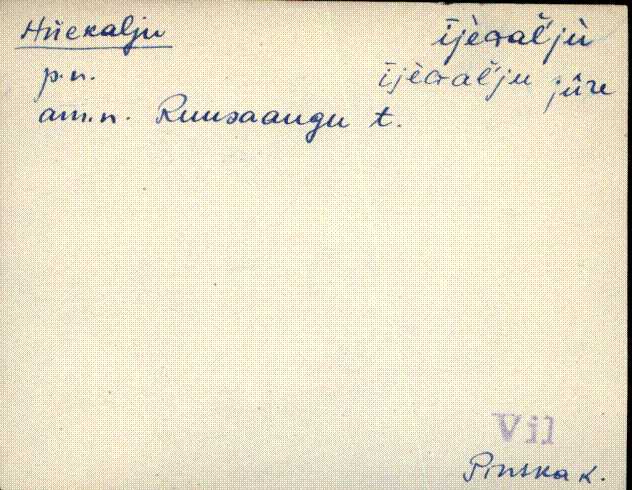 Hiiekalju
ījeɢal̆jù
p.n.
ījeɢal̆ju jūre
am.n. Ruusaaugu t.
Vil
Pinska k.